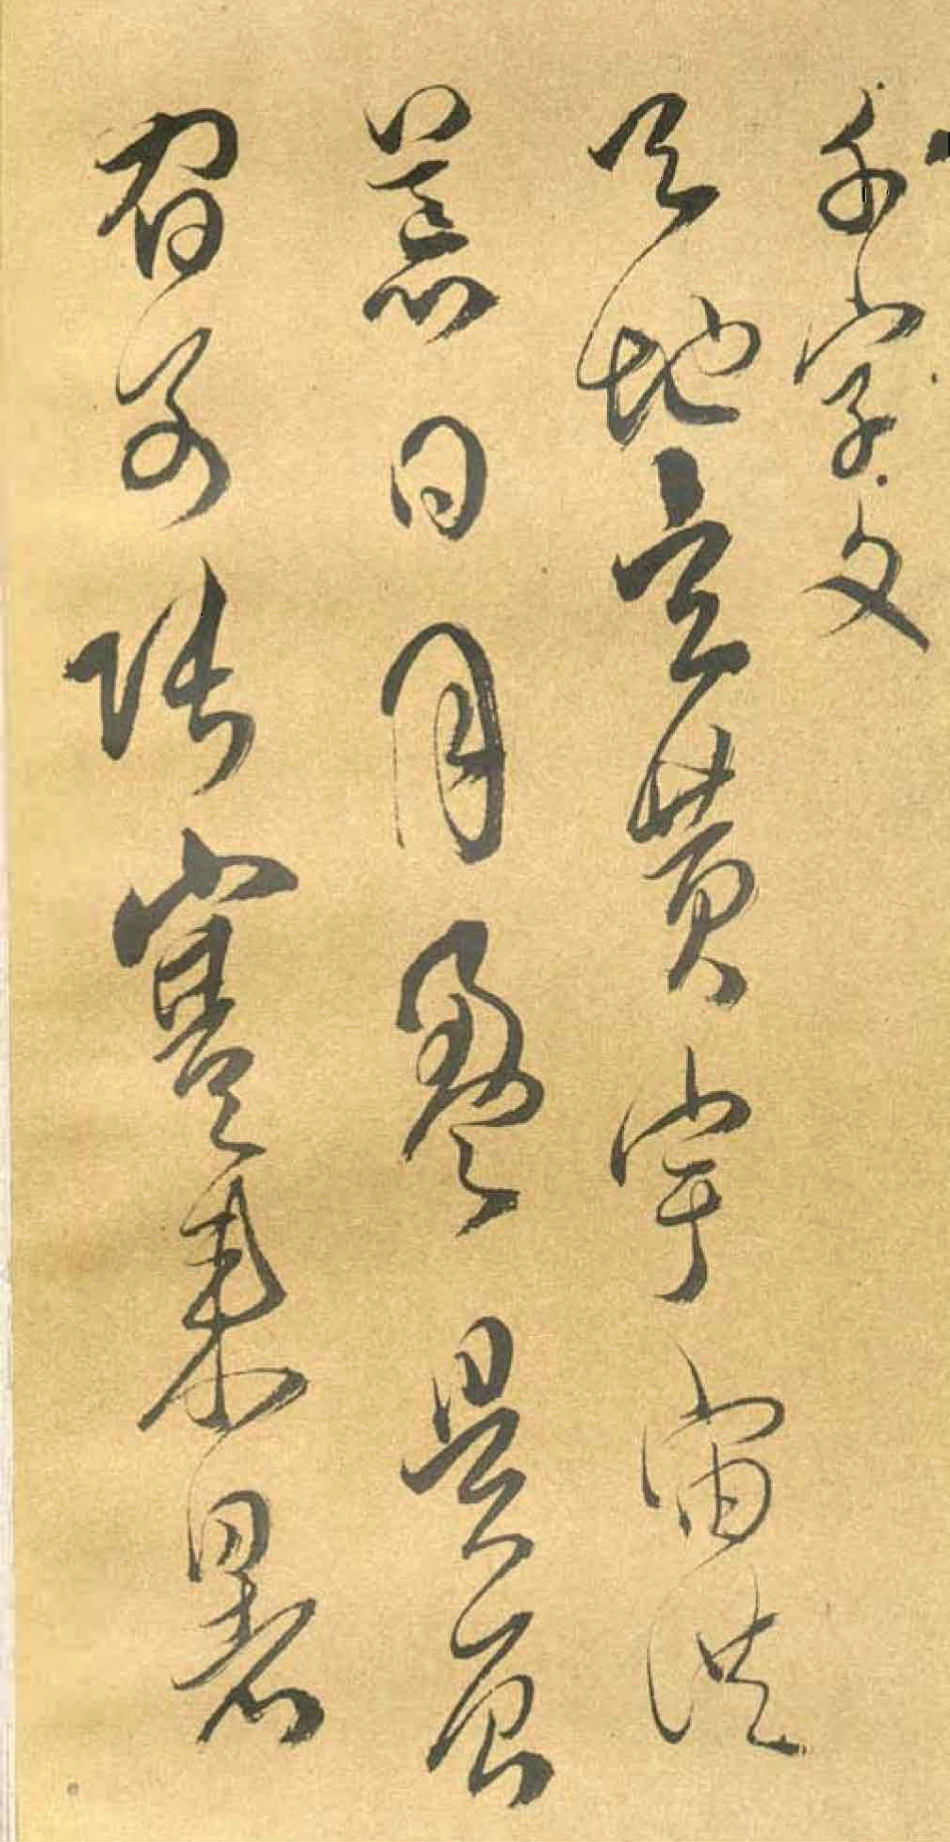 千字文
天地玄黄宇宙洪
荒日月盈昃辰
宿列張寒來暑